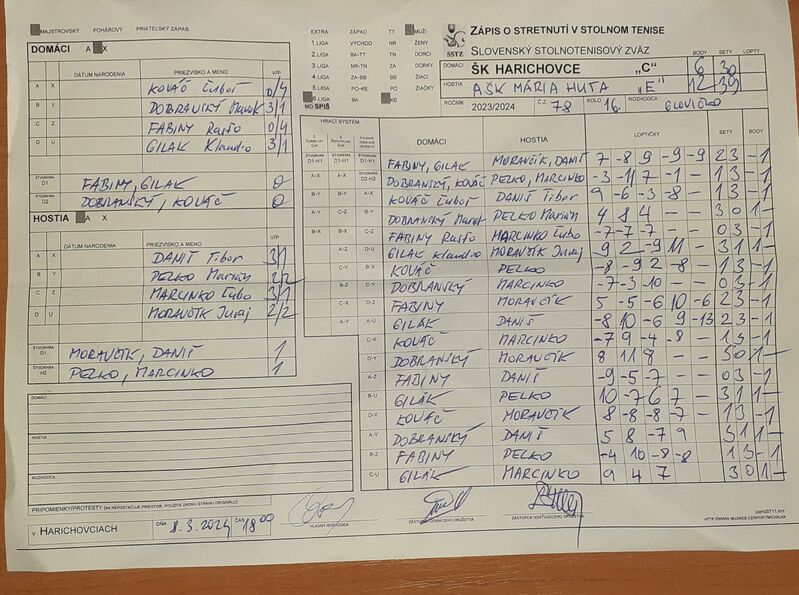 MAJSTROVSKÝ POHÁROVÝ PRIATEĽSKÝ ZÁPAS
DOMÁCI A X
DÁTUM NARODENIA PRIEZVISKO A MENO V/P
A X KOVÁČ Ľuboš 0/4
B Y DOBRANSKÝ Marek 3/1
C Z FABINY Rasťo 0/4
D U GILÁK Klaudio 3/1
ŠTVORHRA D1 FABINY, GILÁK 0
ŠTVORHRA D2 DOBRANSKÝ, KOVÁČ 0
HOSTIA A X
DÁTUM NARODENIA PRIEZVISKO A MENO V/P
A X DANIŠ Tibor 3/1
B Y PEĽKO Marián 2/2
C Z MARCINKO Ľubo 3/1
D U MORAVČÍK Juraj 2/2
ŠTVORHRA D1 MORAVČÍK, DANIŠ 1
ŠTVORHRA H2 PEĽKO, MARCINKO 1
DOMÁCI
HOSTIA
ROZHODCA
PRIPOMIENKY/PROTESTY (AK NEPOSTAČUJE PRIESTOR, POUŽITE ZADNÚ STRANU ORIGINÁLU)
V HARICHOVCIACH DŇA 8.3.2024 ČAS 18 00
EXTRA ZÁPAD TT MUŽI
1.LIGA VÝCHOD NR ŽENY
2.LIGA BA-TT TN DORCI
3.LIGA NR-TN ZA DORKY
4.LIGA ZA-BB BB ŽIACI
5.LIGA PO-KE PO ŽIAČKY
6.LIGA BA KE
MO SPIŠ
SSTZ
ZÁPIS O STRETNUTÍ V STOLNOM TENISE
SLOVENSKÝ STOLNOTENISOVÝ ZVÄZ
BODY SETY LOPTY
DOMÁCI ŠK HARICHOVCE „C“ 6 30
HOSTIA AŠK MÁRIA HUTA „E“ 12 39
ROČNÍK 2023/2024 Č.Z. 78 KOLO 16. ROZHODCA
HRACÍ SYSTÉM
DOMÁCI HOSTIA LOPTIČKY SETY BODY
D1-H1 D1-H1 D1-H1 FABINY, GILÁK MORAVČÍK, DANIŠ 7 -8 9 -9 -9 2 3 - 1
A-X A-X D2-H2 DOBRANSKÝ, KOVÁČ PEĽKO, MARCINKO -3 -11 7 -1 - 1 3 - 1
B-Y B-Y A-X KOVÁČ Ľuboš DANIŠ Tibor 9 -6 -3 -8 - 1 3 - 1
A-Y C-Z B-Y DOBRANSKÝ Marek PEĽKO Marián 4 8 4 - - 3 0 1 -
B-X B-X C-Z FABINY Rasťo MARCINKO Ľubo -7 -7 -7 - - 0 3 - 1
A-Z D-U GILÁK Klaudio MORAVČÍK Juraj 9 2 -9 11 - 3 1 1 -
C-Y B-X KOVÁČ PEĽKO -8 -9 2 -8 - 1 3 - 1
B-Z C-Y DOBRANSKÝ MARCINKO -7 -3 -10 - - 0 3 - 1
C-X D-Z FABINY MORAVČÍK 5 -5 -6 10 -6 2 3 - 1
A-Y A-U GILÁK DANIŠ -8 10 -6 9 -13 2 3 - 1
C-X KOVÁČ MARCINKO -7 9 -4 -8 - 1 3 - 1
D-Y DOBRANSKÝ MORAVČÍK 8 11 8 - - 3 0 1 -
A-Z FABINY DANIŠ -9 -5 -7 - - 0 3 - 1
B-U GILÁK PEĽKO 10 -7 6 7 - 3 1 1 -
D-X KOVÁČ MORAVČÍK 8 -8 -8 -7 - 1 3 - 1
A-Y DOBRANSKÝ DANIŠ 5 8 -7 9 3 1 1 -
B-Z FABINY PEĽKO -4 10 -8 -8 1 3 - 1
C-U GILÁK MARCINKO 9 4 7 3 0 1 -
HLAVNÝ ROZHODCA
ZÁSTUPCA DOMÁCEHO DRUŽSTVA
ZÁSTUPCA HOSŤUJÚCEHO DRUŽSTVA